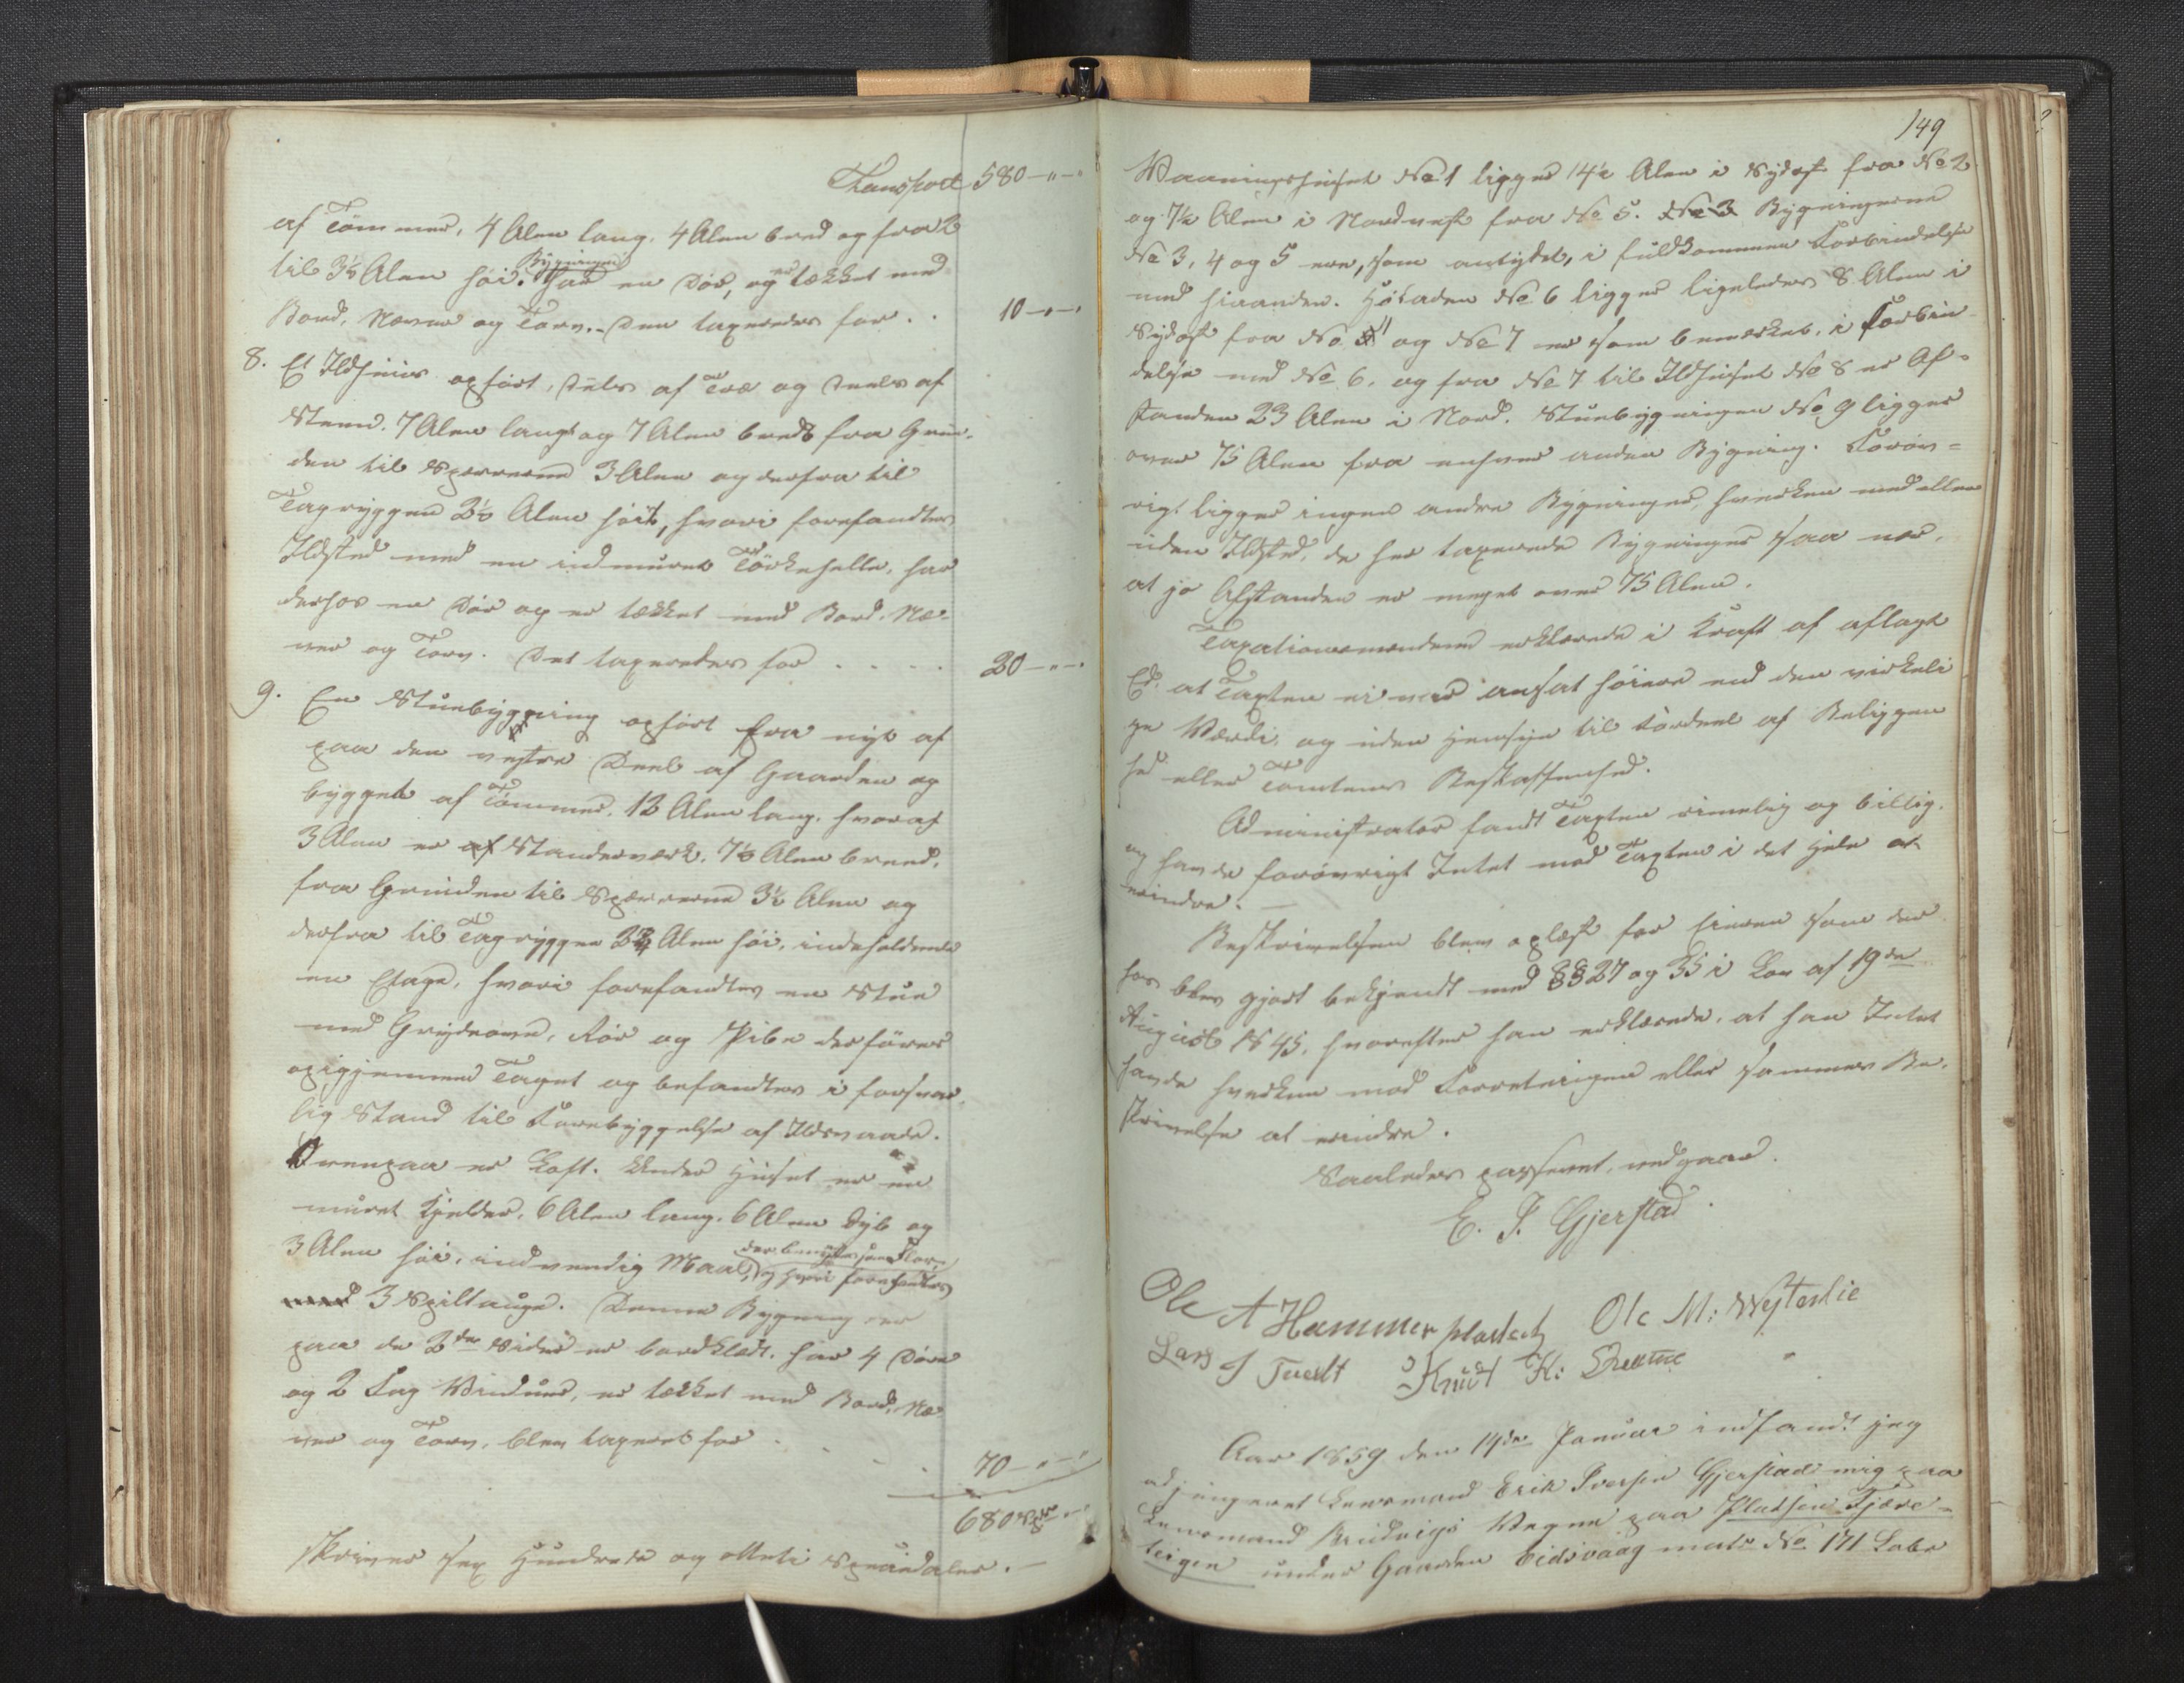 Transport 580 — " — "
af Tømmer, 4 Alen lang, 4 Alen bred og fra 2
til 3½ Alen høi. Bygningen har en Dør, og er tækket med
Bord, Næver og Torv. Den taxeredes for . . 10 — " — "
8. Et Ildhuus opført, deels af Træ og deels af
Steen, 7 Alen langt og 7 Alen bredt fra Grun-
den til Sperrerne 3 Alen og derfra til
Tagryggen 2½ Alen høit, hvori forefandtes
Ildsted med en indmuret Tørkehelle, har
derhos en Dør og er tækket med Bord, Næ-
ver og Torv. Det taxeredes for . . . . 20 — " — "
9. En Stuebygning opført fra nyt af
paa den vestre Deel af Gaarden og
bygget af Tømmer, 12 Alen lang, hvoraf
3 Alen er af Standerværk, 7½ Alen breed,
fra Grunden til Sperrerne 3½ Alen og
derfra til Tagryggen 3¾ Alen høi, indeholdende
en Etage, hvori forefandtes en Stue
med Grydeovn, Rør og Pibe der fører
opigjennem Taget og befandtes i forsvar-
lig Stand til Forebyggelse af Ildsvaade.
Ovenpaa er Loft. Under Huset er en
muret Kjelder, 6 Alen lang, 6 Alen dyb og
3 Alen høi, indvendig Maal, der benyttes som Flor, og hvori forefandtes
3 Spiltauge. Denne Bygning er
paa de 2de Sider er bordklædt, har 4 Døre
og 2 Fag Vinduer, er tækket med Bord, Næ-
ver og Torv, blev taxeret for . . . 70 — " — "
680 Spd — "
skriver sex Hundrede og otteti Speciedaler. —
149
Vaaningshuset No 1 ligger 14½ Alen i Sydost fra No 2
og 7½ Alen i Nordvest fra No 5. No 3 Bygningerne
No 3, 4 og 5 ere, som antydet, i fuldkommen Forbindelse
med hinanden. Høladen No 6 ligger ligeledes 8 Alen i
Sydost fra No og No 7 er som bemærket, i Forbin-
delse med No 6, og fra No 7 til Ildhuset No 8 er Af-
standen 23 Alen i Nord. Stuebygningen No 9 ligger
over 75 Alen fra enhver anden Bygning. Forøv-
rigt ligger ingen andre Bygninger, hverken med eller
uden Ildsted, de her taxerede Bygninger saa nær,
at jo Afstanden er meget over 75 Alen.
Taxationsmændene erklærede i Kraft af aflagt
Ed, at Taxten ei var ansat høiere end den virkeli-
ge Værdi, og uden Hensyn til Fordeel af Beliggen-
hed eller Tomtens Beskaffenhed.
Administrator fandt Taxten rimelig og billig,
og havde forøvrigt Intet mod Taxten i det Hele at
erindre. —
Beskrivelsen blev oplæst for Eieren som der-
hos blev gjort bekjendt med §§ 27 og 35 i Lov af 19de
August 1845, hvorefter han erklærede, at han Intet
havde hverken mod Forretningen eller sammes Be-
skrivelse at erindre.
Saaledes passeret, vedgaar.
E. I. Gjerstad.
Ole A Hammer Ole M: Westerlie
Lars J Tvedt Knud K:
Aar 1859 den 14de Januar indfandt jeg
adjungeret Lensmand Erik Iversen Gjerstad mig paa
Lensmand Vegne paa Pladsen Fjære-
teigen under Gaarden Eidsvaag matr No 171 Løbe